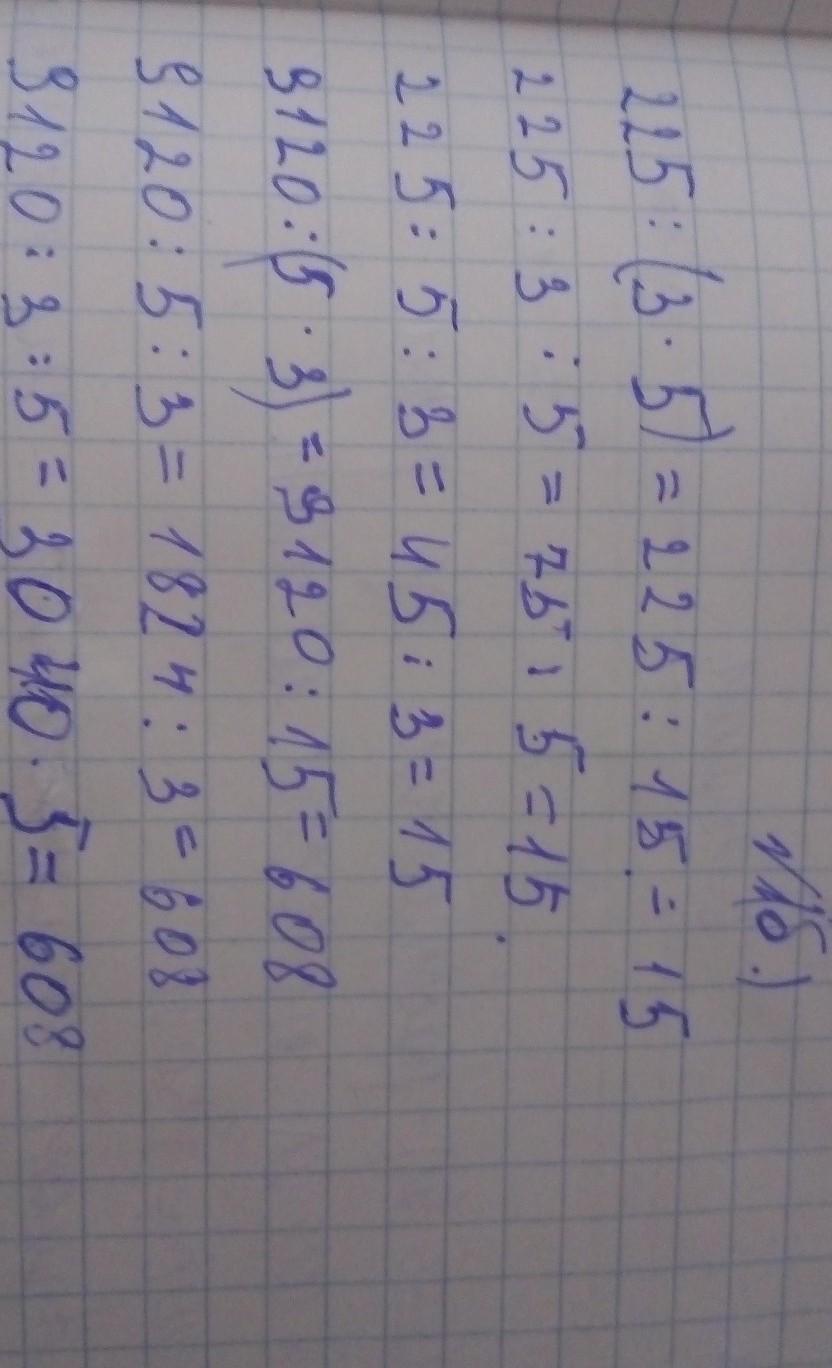 225 : (3 · 5) = 225 : 15 = 15
225 : 3 : 5 = 75 : 5 = 15
225 : 5 : 3 = 45 : 3 = 15
9120 : (5 · 3) = 9120 : 15 = 608
9120 : 5 : 3 = 1824 : 3 = 608
9120 : 3 : 5 = 3040 : 5 = 608